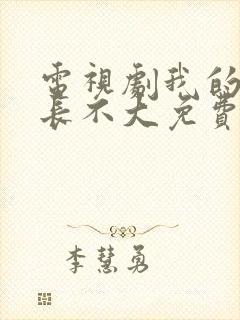 電視劇我的
長不大免費
李慧勇